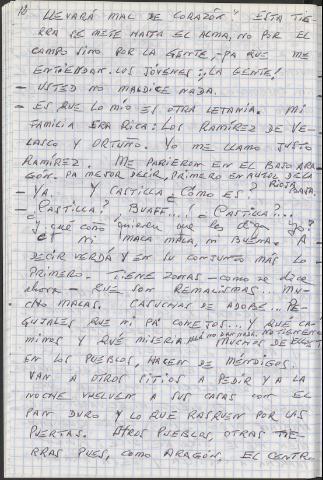 10
LLEVARÁ MAL DE CORAZÓN" ESTA TIE-
RRA SE METE HASTA EL ALMA, NO POR EL
CAMPO SINO POR LA GENTE, - PA QUE ME
ENTIENDAN. LOS JÓVENES: ¡LA GENTE!
- USTED NO MALDICE NADA.
- ES QUE LO MÍO ES OTRA LETANÍA. MI
FAMILIA ERA RICA: LOS RAMÍREZ DE VE-
LASCO Y ORTUÑO. YO ME LLAMO JUSTO
RAMÍREZ. ME PARIERON EN EL BAJO ARA-
GÓN. PA MEJOR DECIR, PRIMERO EN
- YA. Y CASTILLA ¿CÓMO ES?
- ¿CASTILLA? BUAFF...! ¿CASTILLA?...
¿y que coño quieren que les diga yo?
NI MALA MALA, NI BUENA. A
DECIR VERDÁ Y EN SU CONJUNTO MÁS LO
PRIMERO. TIENE ZONAS - como se dice
ahora - QUE SON REMALISMAS. MU-
CHO MALAS. CASUCHAS DE ADOBE... PE-
GUJALES QUE NI PÁ CONEJOS... Y QUE CA-
MINOS Y QUE MISERIA MUCHOS DE ELLOS
EN LOS PUEBLOS, HACEN DE MENDIGOS.
VAN A OTROS SITIOS A PEDIR Y A LA
NOCHE VUELVEN A SUS CASAS CON EL
PAN DURO Y LO QUE RASQUEN POR LAS
PUERTAS. OTROS PUEBLOS, OTRAS TIE-
RRAS PUES, COMO ARAGÓN, EL CENTR-